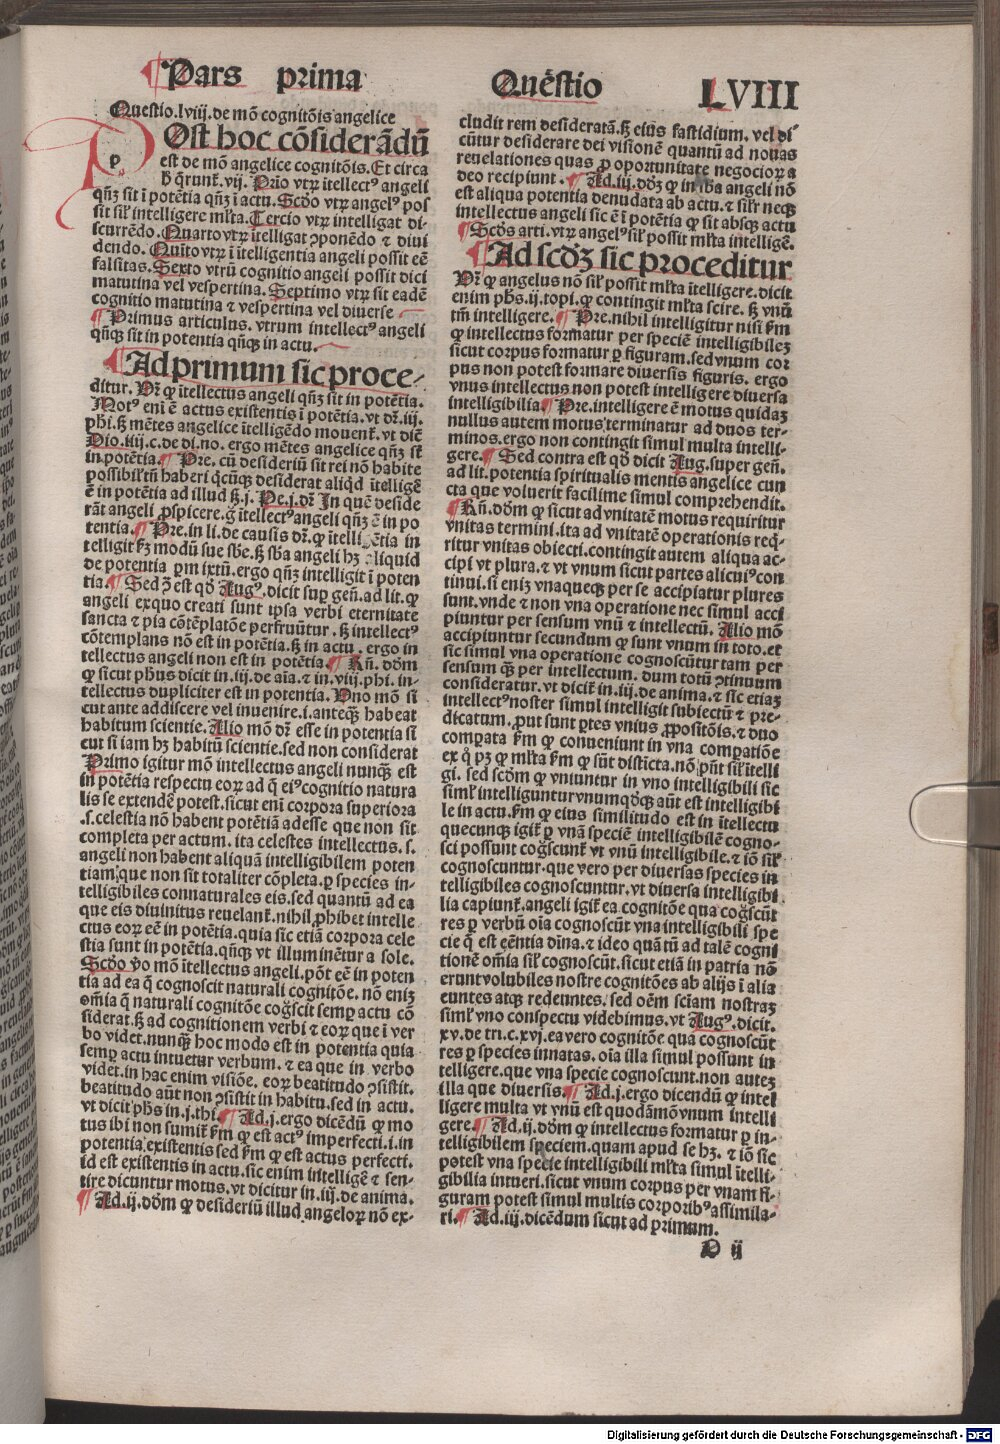 Pars prima Questio LVIII
Questio.lviij.de mō cognitōis angelice
POst hoc cōsiderādū
est de mō angelice cognitōis. Et circa
h̄ q̄runt᷑. vij. Prīo vtꝝ ītellectꝰ angeli
qn̄qꝫ sit ī potētia qn̄qꝫ ī actu. Scd̄o vtꝝ angelꝰ pos
sit siɫ intelligere mɫta. Tercio vtꝝ intelligat di-
scurrēdo. Quarto vtꝝ ītelligat ꝯponēdo ⁊ diui
dendo. Quīto vtꝝ ī ītelligentia angeli possit eē
falsitas. Sexto vtrū cognitio angeli possit dici
matutina vel vespertina. Septimo vtꝝ sit eadē
cognitio matutina ⁊ vespertina vel diuerse
¶ Primus articulus. vtrum intellectꝰ angeli
qn̄qꝫ sit in potentia qn̄qꝫ in actu.
¶ Ad primum sic proce-
ditur. Vr̄ ꝙ ītellectus angeli qn̄qꝫ sit in potētia.
Motꝰ enī ē actus existentis ī potētia. vt dr̄. iij.
phi. sꝫ mētes angelice ītelligēdo mouent᷑. vt dic̄
Dio. iiij. c. de di. no. ergo mētes angelice qn̄qꝫ st̄
in potētia. ¶ Pre. cū desideriū sit rei nō habite
possibiɫ tn̄ haberi q̄cūqꝫ desiderat aliqd̄ ītelligē
ē in potētia ad illud sꝫ. j. Pe. j. dr̄ In quē deside
rāt angeli ꝓspicere. g̊ ītellectꝰ angeli qn̄qꝫ ē in po
tentia. ¶ Pre. in li. de causis dr̄. ꝙ ītelligētia in
telligit ẜm modū sue sb̄e. sꝫ sb̄a angeli hꝫ aliquid
de potentia ꝑmixtū. ergo qn̄qꝫ intelligit ī poten
tia. ¶ Sed ꝯ̄ est qd̄ Augꝰ. dicit suꝑ gen̄. ad lit. ꝙ
angeli ex quo creati sunt ipsa verbi eternitate
sancta ⁊ pia cōtēplatōe perfruūtur. sꝫ intellectꝰ
cōtemplans nō est in potētia. sꝫ in actu. ergo in
tellectus angeli non est in potētia. ¶ Rn̄. dōm
ꝙ sicut phūs dicit in. iij. de aīa. ⁊ in. viij. phi. in-
tellectus dupliciter est in potentia. Uno mō si
cut ante addiscere vel inuenire. i. anteqꝫ habeat
habitum scientie. Alio mō dr̄ esse in potentia si
cut si iam hꝫ habitū scientie. sed non considerat
Primo igitur mō intellectus angeli nunqꝫ est
in potētia respectu eoꝝ ad q̄ eiꝰ cognitio natura
lis se extendē potest. sicut eni corpora superiora
.s. celestia nō habent potētiā ad esse que non sit
completa per actum. ita celestes intellectus. s.
angeli non habent aliquā intelligibilem poten
tiam. que non sit totaliter cōpleta. ꝑ species in-
telligibiles connaturales eis. sed quantū ad ea
que eis diuinitus reuelant᷑. nihil ꝓhibet intelle
ctus eoꝝ eē in potētia. quia sic etiā corpora cele
stia sunt in potētia. qn̄qꝫ vt illuminētur a sole.
Scd̄o v̄o mō ītellectus angeli. pōt eē in poten
tia ad ea q̄ cognoscit naturali cognitōe. nō eniꝫ
oīa q̄ naturali cognitōe cog̊scit semꝑ actu cō
siderat. sꝫ ad cognitionem verbi ⁊ eoꝝ que ī ver
bo videt. nunqꝫ hoc modo est in potentia quia
semꝑ actu intuetur verbum. ⁊ ea que in verbo
videt. in hac enim visiōe. eoꝝ beatitudo ꝯsistit.
beatitudo aūt non ꝯsistit in habitu. sed in actu.
vt dicit phūs in. j. thi. ¶ Ad. j. ergo dicēdū ꝙ mo
tus ibi non sumit᷑ ẜm ꝙ est actꝰ imperfecti. i. in
potentia existentis sed ẜm ꝙ est actus perfecti.
id est existentis in actu. sic enim intelligē ⁊ sen-
tire dicuntur motus. vt dicitur in. iij. de anima.
¶ Ad. ij. dōm ꝙ desideriū illud angeloꝝ nō ex-
cludit rem desideratā. sꝫ eius fastidium. vel di
cūtur desiderare dei visionē quantū ad nouas
reuelationes quas ꝓ oportunitate negocioꝝ a
deo recipiunt. ¶ Ad. iij. dōꝫ ꝙ in sb̄a angeli nō
est aliqua potentia denudata ab actu. ⁊ siɫr neqꝫ
intellectus angeli sic ē ī potētia ꝙ sit absqꝫ actu
¶ Scd̄s arti. vtꝝ angelꝰ siɫ possit mɫta intelligē.
¶ Ad scd̄ꝫ sic proceditur
Vr̄ ꝙ angelus nō siɫ possit mɫta ītelligere. dicit
enim phs̄. ij. topi. ꝙ contingit mɫta scire. sꝫ vnū
tm̄ intelligere. ¶ Pre. nihil intelligitur nisi ẜm
ꝙ intellectus formatur per speciē intelligibileꝫ
sicut corpus formatur ꝑ figuram. sed vnum cor
pus non potest formare diuersis figuris. ergo
vnus intellectus non potest intelligere diuersa
intelligibilia. ¶ Pre. intelligere ē motus quidaꝫ
nullus autem motus terminatur ad duos ter-
minos. ergo non contingit simul multa intelli-
gere. ¶ Sed contra est qd̄ dicit Aug. super gen̄.
ad lit. potentia spiritualis mentis angelice cun
cta que voluerit facilime simul comprehendit.
¶ Rn̄. dōm ꝙ sicut ad vnitatē motus requiritur
vnitas termini. ita ad vnitatē operationis reqͥ-
ritur vnitas obiecti. contingit autem aliqua ac-
cipi vt plura. ⁊ vt vnum sicut partes alicuiꝰ con
tinui. si eniꝫ vnaqueqꝫ per se accipiatur plures
sunt. vnde ⁊ non vna operatione nec simul acci
piuntur per sensum vnū ⁊ intellectū. Alio mō
accipiuntur secundum ꝙ sunt vnum in toto. et
sic simul vna operatione cognoscūtur tam per
sensum qꝫ per intellectum. dum totū ꝯtinuum
consideratur. vt dicit᷑ in. iij. de anima. ⁊ sic etiaꝫ
intellectꝰ noster simul intelligit subiectū ⁊ pre-
dicatum. ꝓut sunt ꝑtes vnius ꝓpositōis. ⁊ duo
comꝑata ẜm ꝙ conueniunt in vna comꝑatiōe
ex q̊ pꝫ ꝙ mɫta ẜm ꝙ sūt disticta. nō pn̄t siɫ ītelli
gi. sed scd̄m ꝙ vniuntur in vno intelligibili sic
simɫ intelliguntur vnumqd̄qꝫ aūt est intelligibi
le in actu. ẜm ꝙ eius similitudo est in ītellectu
quecunqꝫ igit᷑ ꝑ vnā speciē intelligibilē cogno-
sci possunt cog̊scunt᷑ vt vnū intelligibile. ⁊ iō siɫ
cognoscuntur. que vero per diuersas species in
telligibiles cognoscuntur. vt diuersa intelligibi
lia capiunt᷑. angeli igit᷑ ea cognitōe qua cog̊scūt
res ꝑ verbū oīa cognoscūt vna intelligibili spe
cie q̄ est eēntia dīna. ⁊ ideo quātū ad talē cogni
tionē om̄ia siɫ cognoscūt. sicut etiā in patria nō
erunt volubiles nostre cognitōes ab alijs ī alia
euntes atqꝫ redeuntes. sed oēm sciam nostraꝫ
simɫ vno conspectu videbimus. vt Augꝰ. dicit.
xv. de tri. c. xvj. ea vero cognitōe qua cognoscūt
res ꝑ species innatas. oīa illa simul possunt in
telligere. que vna specie cognoscunt. non auteꝫ
illa que diuersis. ¶ Ad. j. ergo dicendū ꝙ intel
ligere multa vt vnū est quodāmō vnum intelli
gere. ¶ Ad. ij. dōm ꝙ intellectus formatur ꝑ in-
telligibilem speciem. quam apud se hꝫ. ⁊ iō sic
potest vna specie intelligibili mɫta simul ītelli-
gibilia intueri. sicut vnum corpus per vnam fi-
guram potest simul multis corporibꝰ assimila-
ri. ¶ Ad. iij. dicēdum sicut ad primum.
ij
Digitalisierung gefördert durch die Deutsche Forschungsgemeinschaft - DFG